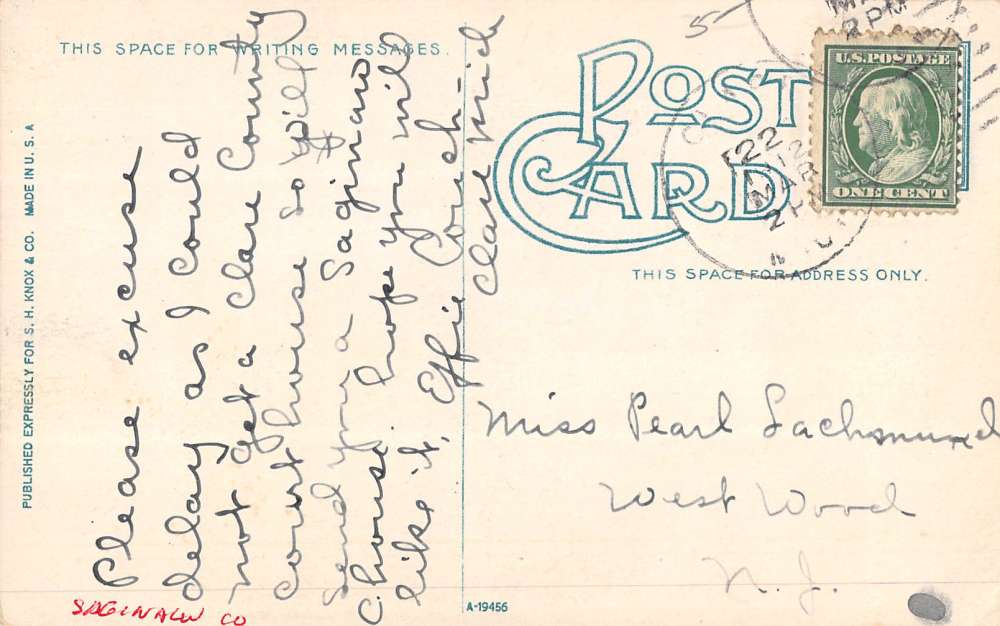 THIS SPACE FOR WRITING MESSAGES.
Please excuse
delay as I could
not get a Clare County
court house so will
send you a Saginaw
C house. hope you will
like it, Effie Couch-
Clare Mich
PUBLISHED EXPRESSLY FOR S. H. KNOX & CO. MADE IN U. S. A
SAGINAW CO
A-19456
5-
POST
CARD
U.S. POSTAGE
ONE CENT
2 PM
22
MAR
2 P
THIS SPACE FOR ADDRESS ONLY.
Miss Pearl Lachmund
West Wood
N. J.